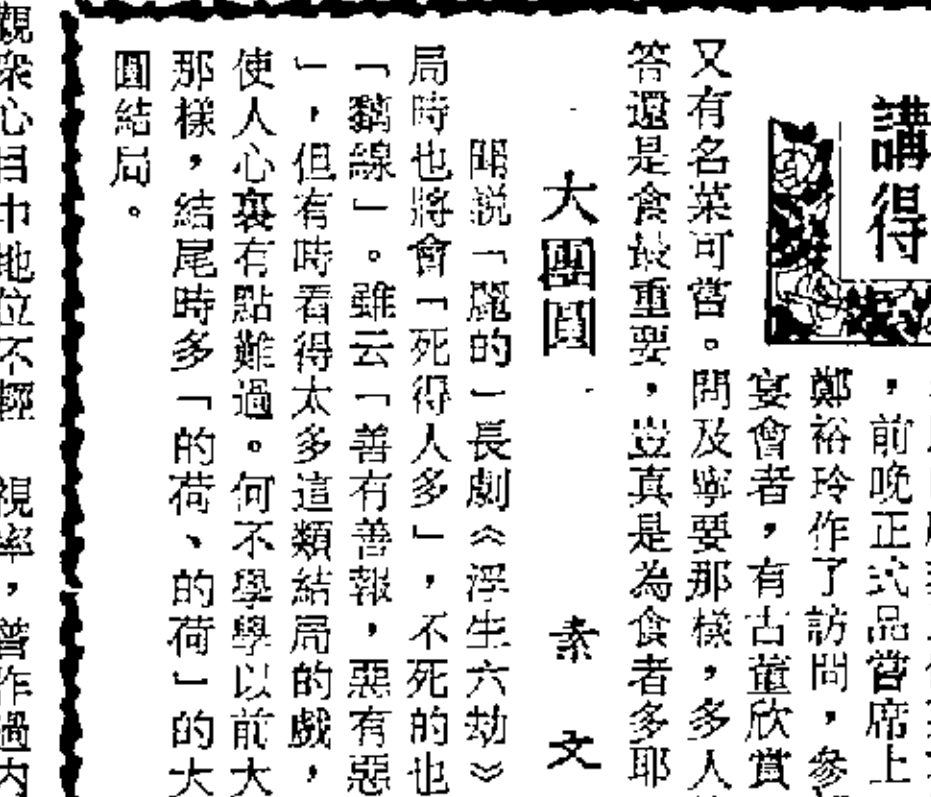 講得
，前晚正式品嘗席上
鄭裕玲作了訪問，參
宴會者，有古董欣賞
又有名菜可嘗。問及寧要那樣，多人
答還是食最重要，豈真是為食者多耶
大團圓
素文
聞説「麗的」長劇《浮生六劫》
局時也將會「死得人多」，不死的也
「黐線」。雖云「善有善報，惡有惡
」，但有時看得太多這類結局的戲，
使人心裏有點難過。何不學學以前大
那樣，結尾時多「的荷、的荷」的大
圓結局。
觀衆心目中地位不輕 視率，曾作過内